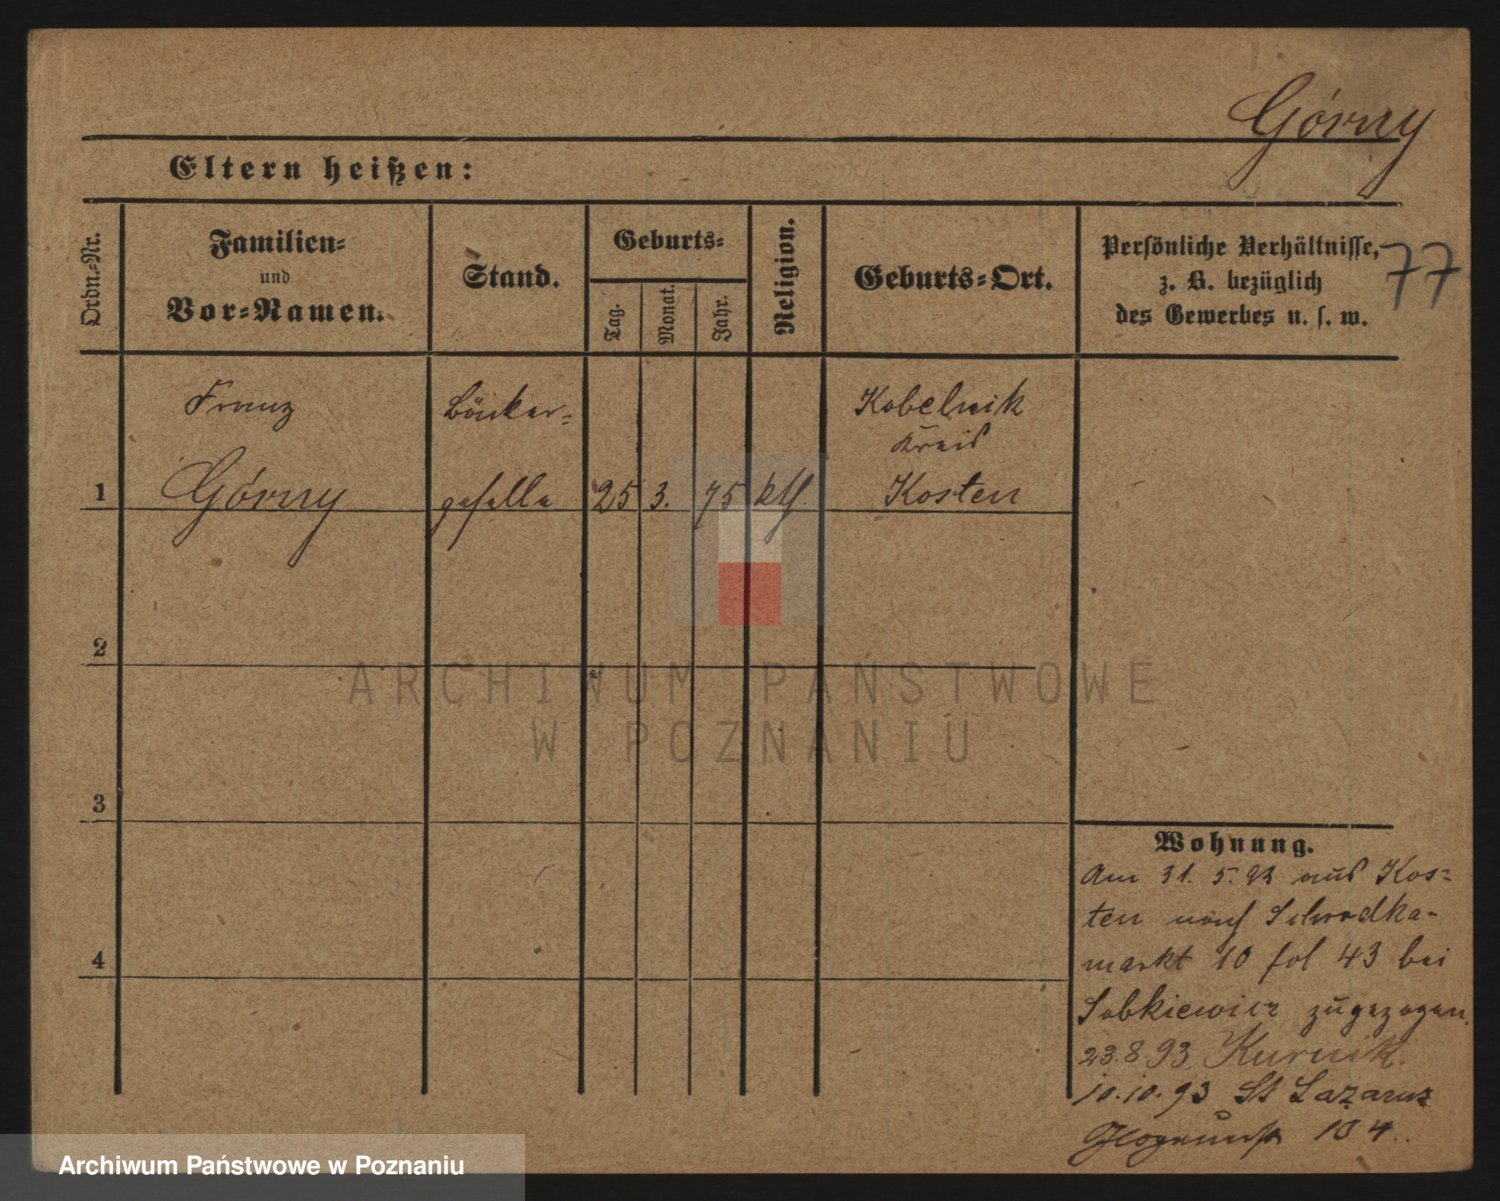 Górny
Eltern heißen:
Ordn.-Nr.
Familien-
und
Vor-Namen.
Stand.
Geburts-
Tag.
Monat.
Jahr.
Religion.
Geburts-Ort.
Persönliche Verhältnisse,
z. B. bezüglich
des Gewerbes u. s. w.
77
Franz
Bäcker-
Kobelnik
Kreis
1
Górny
geselle
25
3.
75
kth.
Kosten
2
3
4
ARCHIWUM PAŃSTWOWE
W POZNANIU
Wohnung.
Am 31. 5. 93 aus Kos-
ten nach Schrodka-
markt 10 fol 43 bei
Sobkiewicz zugezogen.
23.8.93 Kurnik.
10.10.93 St Lazarus
104.
Archiwum Państwowe w Poznaniu